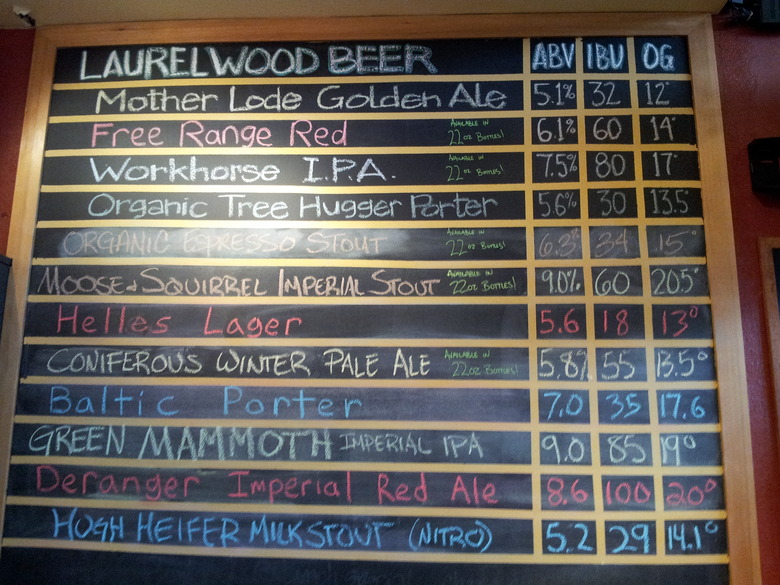 LAURELWOOD BEER ABV IBU OG
Mother Lode Golden Ale 5.1% 32 12°
Free Range Red AVAILABLE IN 22oz BOTTLES! 6.1% 60 14°
Workhorse I.P.A. AVAILABLE IN 22oz BOTTLES! 7.5% 80 17°
Organic Tree Hugger Porter 5.6% 30 13.5°
ORGANIC ESPRESSO STOUT AVAILABLE IN 22oz BOTTLES! 6.3% 34 15°
MOOSE & SQUIRREL IMPERIAL STOUT AVAILABLE IN 22oz BOTTLES! 9.0% 60 20.5°
Helles Lager 5.6 18 13°
CONIFEROUS WINTER PALE ALE AVAILABLE IN 22oz BOTTLES! 5.8% 55 13.5°
Baltic Porter 7.0 35 17.6
GREEN MAMMOTH IMPERIAL IPA 9.0 85 19°
Deranger Imperial Red Ale 8.6 100 20°
HUGH HEIFER MILK STOUT (NITRO) 5.2 29 14.1°